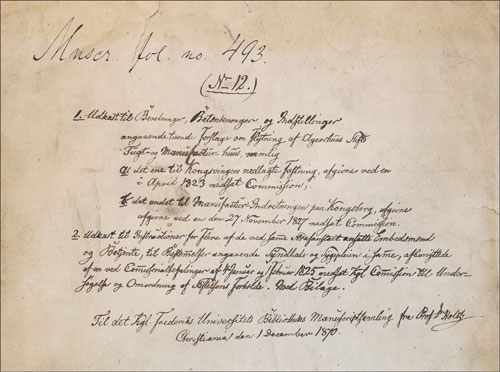 Muscr. fol. no. 493.
(No 12.)
1. Udkast til Beregninger, Betænkninger og Indstillinger
angaaende tvende Forslage om Flytning af Agerhuus Stifts
Tugt- og Manufactur-huus, nemlig
a) det ene til Kongsvingers nedlagte Fæstning, afgivne ved en
i April 1823 nedsat Commission;
b) det andet til Manufactur-Indretningen paa Kongsberg, afgivne
afgivne ved en den 27 November 1827 nedsat Commission.
2. Udkast til Instructioner for Flere af de ved samme ansatte Embedsmænd
og Betjente, til Bestemmelser angaaende Syndhede og Sygepleien i samme, afbenyttede
af en ved Commissorialbefalinger af 4 Januar og 1 Februar 1825 nedsat Kgl. Comission til Under-
søgelse og Omordning af Stiftelsens forhold. Med Bilage.
Til det Kgl. Frederiks Universitets Bibliotheks Manuscriptsamling fra Prof. Dr Holst
Christiania den 1 December 1870.